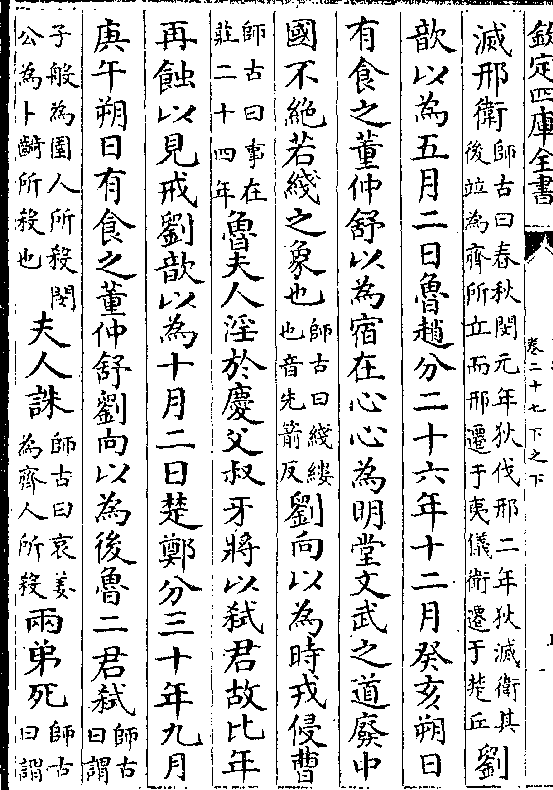 欽定四庫全書
卷二十七下之下
滅邢衛師古曰春秋閔元年狄伐邢二年狄滅衛其後竝為齊所立而邢遷于夷儀衛遷于楚丘劉
歆以為五月二日魯趙分二十六年十二月癸亥朔日
有食之董仲舒以為宿在心心為明堂文武之道廢中
國不絕若綫之象也師古曰綫縷也音先箭反劉向以為時戎侵曹
師古曰事在莊二十四年魯夫人淫於慶父叔牙將以弒君故比年
再蝕以見戒劉歆以為十月二日楚鄭分三十年九月
庚午朔日有食之董仲舒劉向以為後魯二君弒師古曰謂
子般為圉人所殺閔公為卜齮所殺也夫人誅師古曰哀姜為齊人所殺兩弟死師古曰謂